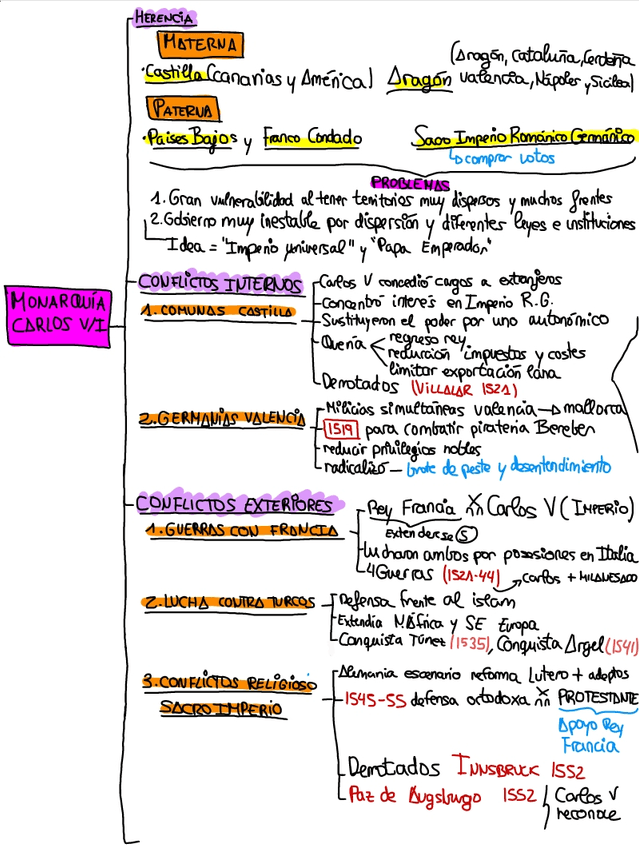 HERENCIA
MATERNA
(Aragón, Cataluña, Cerdeña
·Castilla (canarias y América) Aragón Valencia, Nápoles y Sicilia)
PATERNA
·Países Bajos y Franco Condado Sacro Imperio Románico Germánico
↳ comprar votos
PROBLEMAS
1. Gran vulnerabilidad al tener territorios muy dispersos y muchos frentes
2. Gobierno muy inestable por dispersión y diferentes leyes e instituciones
Idea = "Imperio universal" y "Papa Emperador"
MONARQUÍA
CARLOS V/I
CONFLICTOS INTERNOS
1. COMUNAS CASTILLA
Carlos V concedió cargos a extranjeros
Concentró interés en Imperio R.G.
Sustituyeron el poder por uno autonómico
Quería
regreso rey
reducción impuestos y costes
limitar exportación lana
Derrotados (VILLALAR 1521)
2. GERMANIAS VALENCIA
Milicias simultáneas valencia → mallorca
1519 para combatir piratería Bereber
reducir privilegios nobles
radicalizó — brote de peste y desentendimiento
CONFLICTOS EXTERIORES
1. GUERRAS CON FRANCIA
Rey Francia ⚔ Carlos V (IMPERIO)
Extenderse
Lucharon ambos por posesiones en Italia
4 Guerras (1521-44) → Carlos + MILANESADO
2. LUCHA CONTRA TURCOS
Defensa frente al islam
Extendía N África y SE Europa
Conquista Túnez (1535), Conquista Argel (1541)
3. CONFLICTOS RELIGIOSO
SACRO IMPERIO
Alemania escenario reforma Lutero + adeptos
1545-55 defensa ortodoxa ⚔ PROTESTANTE
Apoyo Rey
Francia
Derrotados INNSBRUCK 1552
Paz de Augsburgo 1552
Carlos V
reconoce